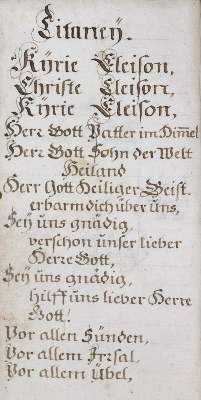 Litaney.
Kÿrie Eleison,
Christe Eleison,
Kÿrie Eleison,
Herr Gott Vatter im Him̄el
Herr Gott Sohn der Welt
Heiland
Herr Gott Heiliger Geist.
erbarm dich über uns,
Seÿ uns gnädig,
verschon unser lieber
Herre Gott,
Seÿ uns gnädig,
hilff uns lieber Herre
Gott!
Vor allen Sünden,
Vor allem Irrsal,
Vor allem Übel,